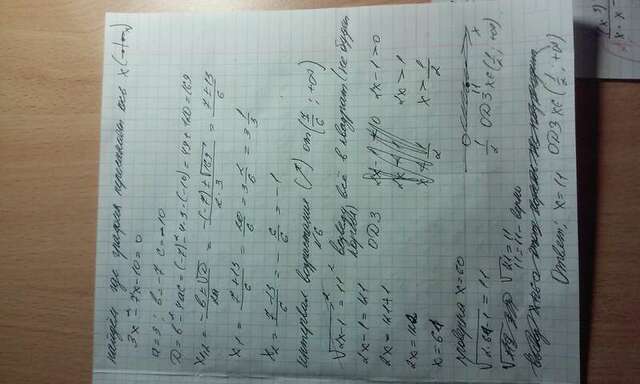 найдём где график пересекает ось x
3x² - 7x - 10 = 0
a = 3; b = -7 c = -10
D = b² - 4ac = (-7)² - 4·3·(-10) = 49 + 120 = 169
x₁,₂ = (-b ± √D)/2a = (-(-7) ± √169)/(2·3) = (7 ± 13)/6
x₁ = (7 + 13)/6 = 20/6 = 3 2/6 = 3 1/3
x₂ = (7 - 13)/6 = -6/6 = -1
интервал возрастания (↗) от (7/6; +∞)
N6
√(2x-1)² = 11² возведу всё в квадрат (не будет корня)
2x - 1 = 121 ОДЗ 2x - 1 > 0
2x = 121 + 1 2x > 1
2x = 122 x > 1/2
x = 61
проверка x = 60
√(2·61-1) = 11 1/2 11 x
ОДЗ x∈(1/2; +∞)
11 = 11 - верно
Ответ: x = 11 ОДЗ x∈(1/2; +∞)